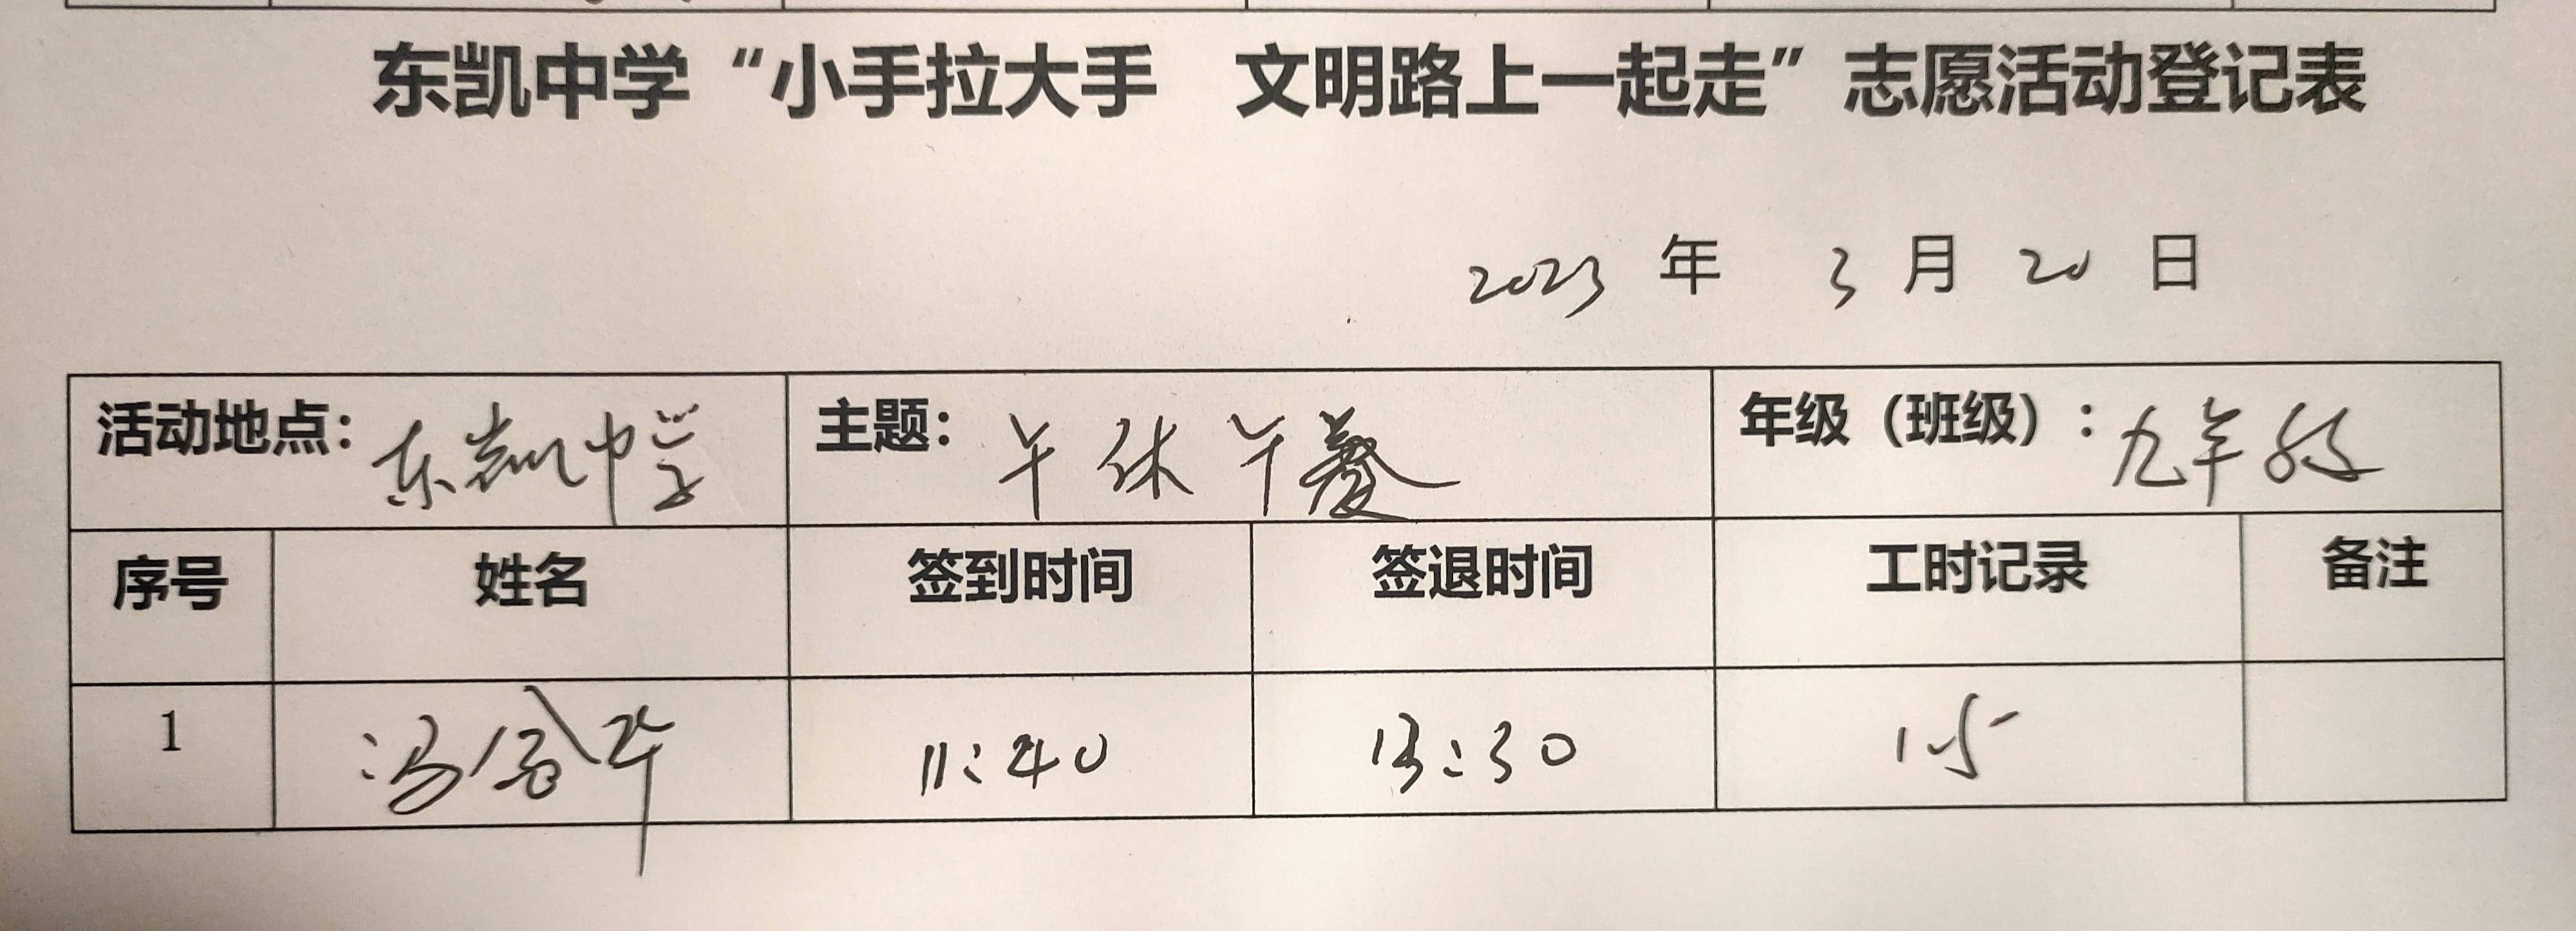 东凯中学“小手拉大手 文明路上一起走”志愿活动登记表
2023 年 3 月 20 日
活动地点：东凯中学 主题：午休午餐 年级（班级）：九年级
序号 姓名 签到时间 签退时间 工时记录 备注
1 冯 华 11:40 13:30 1.5